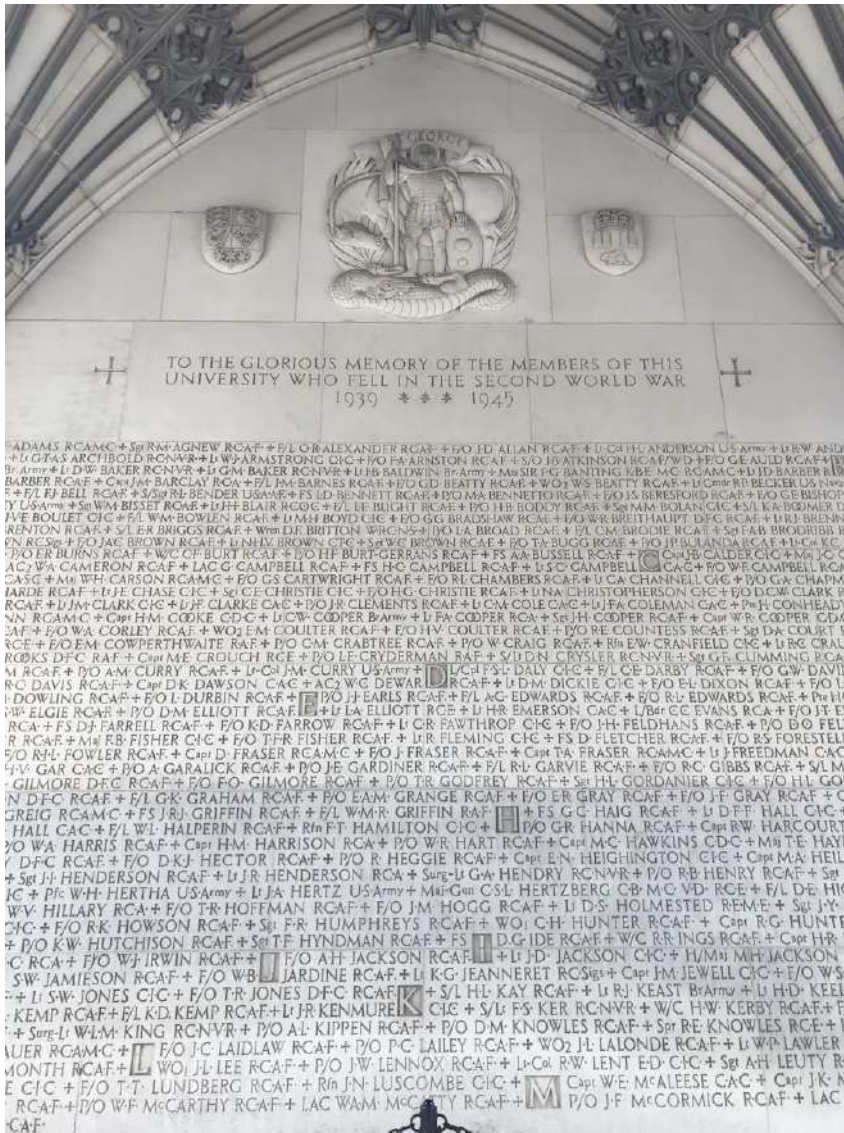 GEORGE
TO THE GLORIOUS MEMORY OF THE MEMBERS OF THIS
UNIVERSITY WHO FELL IN THE SECOND WORLD WAR
1939 * * * 1945
ADAMS R·C·A·M·C + Sgt R·M· AGNEW R·C·A·F· + F/L O·R· ALEXANDER R·C·A·F· + F/O J·D· ALLAN R·C·A·F· + Lt-Col H·L· ANDERSON US·Army + Lt B·W· AND
+ Lt G·T·A·S· ARCHBOLD R·C·N·V·R· + Lt W·J· ARMSTRONG C·I·C + F/O F·A· ARNSTON R·C·A·F· + S/O J·B· ATKINSON R·C·A·F· W·D + F/O G·E· AULD R·C·A·F· + B
Br·Army + Lt D·W· BAKER R·C·N·V·R + Lt G·M· BAKER R·C·N·V·R + Lt H·B· BALDWIN Br·Army + Maj SIR F·G· BANTING K·B·E· M·C· R·C·A·M·C + Lt J·D· BARBER R
BARBER R·C·A·F· + Capt J·M· BARCLAY R·C·A + F/L J·M· BARNES R·C·A·F· + F/O G·D· BEATTY R·C·A·F· + WO2 W·S· BEATTY R·C·A·F· + Lt Cmdr R·P· BECKER US Navy
+ F/L F·J· BELL R·C·A·F· + S/Sgt R·L· BENDER US·A·A·F· + FS L·D· BENNETT R·C·A·F· + P/O M·A· BENNETTO R·C·A·F· + F/O J·S· BERESFORD R·C·A·F· + F/O G·E· BISHOP
Y US·Army + Sgt W·M· BISSET R·C·A·F· + Lt J·H· BLAIR R·C·O·C + F/L L·E· BLIGHT R·C·A·F· + P/O H·B· BODDY R·C·A·F· + Sgt M·M· BOLAN C·I·C + S/L K·A· BOOMER D
J·V·E· BOULET C·I·C + F/L W·M· BOWLEN R·C·A·F· + Lt M·H· BOYD C·I·C + F/O G·G· BRADSHAW R·C·A·F· + F/O W·R· BREITHAUPT D·F·C R·C·A·F· + Lt R·J· BRENN
BRENTON R·C·A·F· + S/L E·R· BRIGGS R·C·A·F· + Wren D·E·F· BRITTON W·R·C·N·S + P/O L·A· BROAD R·C·A·F· + F/L C·M· BRODIE R·C·A·F· + Sgt F·A·B· BRODRIBB
WN R·C·Sigs + F/O J·A·C· BROWN R·C·A·F· + Lt N·H·V· BROWN C·I·C + Sgt W·C· BROWN R·C·A·F· + F/O T·A· BUGG R·C·A·F· + P/O J·P· BULANDA R·C·A·F·
P/O E·R· BURNS R·C·A·F· + W/C C·F· BURT R·C·A·F· + P/O H·F· BURT-GERRANS R·C·A·F· + FS A·A· BUSSELL R·C·A·F· + C Capt J·B· CALDER C·I·C + Maj J·C· C
AC2 W·A· CAMERON R·C·A·F· + LAC G·L· CAMPBELL R·C·A·F· + FS H·C· CAMPBELL R·C·A·F· + Lt S·C· CAMPBELL C·A·C + F/O W·F· CAMPBELL R·C·A
C·A·S·C + Maj W·H· CARSON R·C·A·M·C + F/O G·S· CARTWRIGHT R·C·A·F· + F/O R·L· CHAMBERS R·C·A·F· + Lt C·A· CHANNELL C·I·C + P/O G·A· CHAPM
HARDE R·C·A·F· + Lt J·E· CHASE C·I·C + Sgt C·E· CHRISTIE C·I·C + F/O H·G· CHRISTIE R·C·A·F· + Lt N·A· CHRISTOPHERSON C·I·C + F/O D·C·W· CLARK R
R·C·A·F· + Lt J·M· CLARK C·I·C + Lt J·F· CLARKE C·A·C + P/O J·R· CLEMENTS R·C·A·F· + Lt C·M· COLE C·A·C + Lt J·F·A· COLEMAN C·A·C + Pte J·L· CONHEADY
NN R·C·A·M·C + Capt H·M· COOKE C·D·C + Lt C·W· COOPER Br·Army + Lt F·A· COOPER R·C·A + Sgt J·H· COOPER R·C·A·F· + Capt W·R· COOPER C·D·
C·A·F· + F/O W·A· CORLEY R·C·A·F· + WO2 E·M· COULTER R·C·A·F· + F/O H·V· COULTER R·C·A·F· + P/O R·E· COUNTESS R·C·A·F· + Sgt D·A· COURT
R·C·E + F/O E·M· COWPERTHWAITE R·A·F· + P/O C·M· CRABTREE R·C·A·F· + P/O W· CRAIG R·C·A·F· + Rfn E·W· CRANFIELD C·I·C + Lt R·C· CRAU
CROOKS D·F·C R·A·F· + Capt M·E· CROUCH R·C·E + P/O L·E· CRYDERMAN R·A·F· + S/Lt D·N· CRYSLER R·C·N·V·R + Sgt G·F· CUMMING R·C·A
M R·C·A·F· + P/O A·M· CURRY R·C·A·F· + Lt-Col J·M· CURRY US·Army + D Lt/Col F·S·L· DALY C·I·C + F/L C·E· DARBY R·C·A·F· + F/O G·W· DAVI
R·C· DAVIS R·C·A·F· + Capt D·K· DAWSON C·A·C + AC2 W·G· DEWAR R·C·A·F· + Lt D·M· DICKIE C·I·C + F/O E·L· DIXON R·C·A·F· + F/O L
DOWLING R·C·A·F· + F/O L· DURBIN R·C·A·F· + E P/O J·J· EARLS R·C·A·F· + F/L A·G· EDWARDS R·C·A·F· + F/O R·L· EDWARDS R·C·A·F· + Pte HO
W· ELGIE R·C·A·F· + P/O D·M· ELLIOTT R·C·A·F· + Lt L·A· ELLIOTT R·C·E + Lt H·R· EMERSON C·A·C + L/Bdr C·C· EVANS R·C·A + F/O J·T· E
R·C·A + FS D·J· FARRELL R·C·A·F· + F/O K·D· FARROW R·C·A·F· + Lt G·R· FAWTHROP C·I·C + F/O J·H· FELDHANS R·C·A·F· + P/O D·O· FEL
R R·C·A·F· + Maj F·B· FISHER C·I·C + F/O T·H·R· FISHER R·C·A·F· + Lt R· FLEMING C·I·C + FS D· FLETCHER R·C·A·F· + F/O R·S· FORESTELL
+ F/O R·H·L· FOWLER R·C·A·F· + Capt D· FRASER R·C·A·M·C + F/O J· FRASER R·C·A·F· + Capt T·A· FRASER R·C·A·M·C + Lt J· FREEDMAN C·A·C
H·V· GAR C·A·C + P/O A· GARALICK R·C·A·F· + P/O J·E· GARDINER R·C·A·F· + F/L R·L· GARVIE R·C·A·F· + F/O R·C· GIBBS R·C·A·F· + S/L M
GILMORE D·F·C R·C·A·F· + F/O F·O· GILMORE R·C·A·F· + P/O T·R· GODFREY R·C·A·F· + Sgt H·L· GORDANIER C·I·C + F/O H·L· GO
N D·F·C R·C·A·F· + F/L G·K· GRAHAM R·C·A·F· + P/O E·A·M· GRANGE R·C·A·F· + F/O E·R· GRAY R·C·A·F· + F/O J·F· GRAY R·A·F·
GREIG R·C·A·M·C + FS J·R·J· GRIFFIN R·C·A·F· + F/L W·M·R· GRIFFIN R·A·F· H + FS G·C· HAIG R·C·A·F· + Lt D·F·F· HALL C·I·C +
HALL C·A·C + F/L W·L· HALPERIN R·C·A·F· + Rfn F·T· HAMILTON C·I·C + P/O G·R· HANNA R·C·A·F· + Capt R·W· HARCOURT
P/O W·A· HARRIS R·C·A·F· + Capt H·M· HARRISON R·C·A + P/O W·R· HART R·C·A·F· + Capt M·C· HAWKINS C·D·C + Maj T·E· HAY
Y D·F·C R·C·A·F· + F/O D·K·J· HECTOR R·C·A·F· + P/O R· HEGGIE R·C·A·F· + Capt E·N· HEIGHINGTON C·I·C + Capt M·A· HEIL
+ Sgt J·I· HENDERSON R·C·A·F· + Lt J·R· HENDERSON R·C·A + Surg-Lt G·A· HENDRY R·C·N·V·R + P/O R·B· HENRY R·C·A·F· + Sgt
C·I·C + Pfc W·H· HERTHA US·Army + Lt J·A· HERTZ US·Army + Maj-Gen C·S·L· HERTZBERG C·B· M·C· V·D· R·C·E + F/L D·E· HI
W·V· HILLARY R·C·A + F/O T·R· HOFFMAN R·C·A·F· + F/O J·M· HOGG R·C·A·F· + Lt D·S· HOLMESTED R·E·M·E + Sgt J·Y·
C·I·C + F/O R·K· HOWSON R·C·A·F· + Sgt F·R· HUMPHREYS R·C·A·F· + WO1 C·H· HUNTER R·C·A·F· + Capt R·G· HUNTE
+ P/O K·W· HUTCHISON R·C·A·F· + Sgt T·F· HYNDMAN R·C·A·F· + FS I D·G· IDE R·C·A·F· + W/C R·R· INGS R·C·A·F· + Capt H·R·
C· R·C·A + F/O W·J· IRWIN R·C·A·F· + J F/O A·H· JACKSON R·C·A·F· + Lt J·D· JACKSON C·I·C + H/Maj M·H· JACKSON
S·W· JAMIESON R·C·A·F· + F/O W·B· JARDINE R·C·A·F· + Lt K·G· JEANNERET R·C·Sigs + Capt J·M· JEWELL C·I·C + F/O W·S·
+ Lt S·W· JONES C·I·C + F/O T·R· JONES D·F·C R·C·A·F· K + S/L H·L· KAY R·C·A·F· + Lt R·J· KEAST Br·Army + Lt H·D· KEEL
KEMP R·C·A·F· + F/L K·D· KEMP R·C·A·F· + Lt J·R· KENMURE C·I·C + S/Lt F·S· KER R·C·N·V·R + W/C H·W· KERBY R·C·A·F· + F
+ Surg-Lt W·L·M· KING R·C·N·V·R + P/O A·L· KIPPEN R·C·A·F· + P/O D·M· KNOWLES R·C·A·F· + Spr R·E· KNOWLES R·C·E +
AUER R·C·A·M·C + L F/O J·C· LAIDLAW R·C·A·F· + P/O P·C· LAILEY R·C·A·F· + WO2 J·L· LALONDE R·C·A·F· + Lt W·P· LAWLER
MONTH R·C·A·F· + WO1 J·L· LEE R·C·A·F· + P/O J·W· LENNOX R·C·A·F· + Lt-Col R·W· LENT E·D· C·I·C + Sgt A·H· LEUTY R
E C·I·C + F/O T·T· LUNDBERG R·C·A·F· + Rfn J·N· LUSCOMBE C·I·C + M Capt W·E· McALEESE C·A·C + Capt J·K· M
R·C·A·F· + P/O W·F· McCARTHY R·C·A·F· + LAC W·A·M· McCATTY R·C·A·F· + P/O J·F· McCORMICK R·C·A·F· + LAC
·C·A·F·